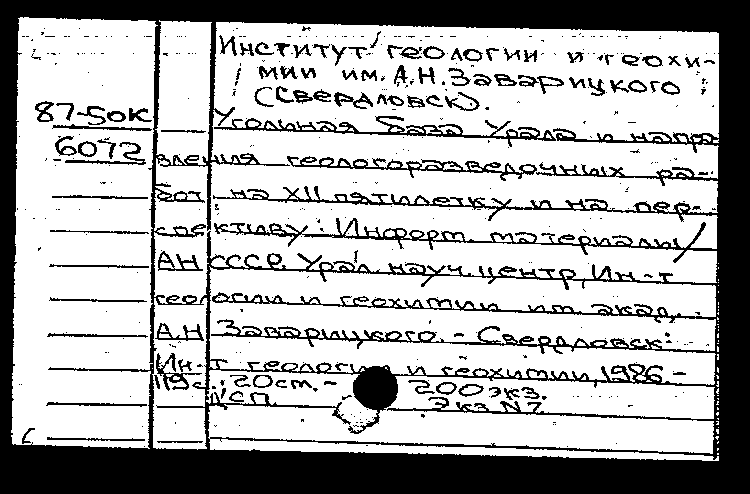 Институт геологии и геохи-
мии им. А.Н. Заварицкого
(Свердловск).
87-50К
Угольная база Урала и напра-
6072
вления геологоразведочных ра-
бот на XII пятилетку и на пер-
спективу: Информ. материалы/
АН СССР. Урал. науч. центр, Ин-т
геологии и геохимии им. акад.
А.Н Заварицкого. - Свердловск:
Ин-т геологии и геохимии, 1986. -
119 с.; 20 см. - 200 экз.
Экз. N 7